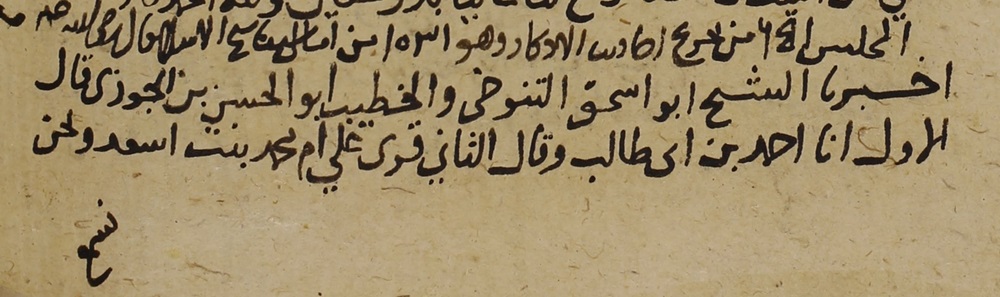 المجلس من تخريج احاديث الاذكار وهو من امالي شيخ الاسلام قال رضي الله عنه
اخبرنا الشيخ ابو اسحق التنوخي والخطيب ابو الحسن بن الجوزي قال
الاول انا احمد بن ابي طالب وقال الثاني قرئ علي ام محمد بنت اسعد ونحن
نسمع